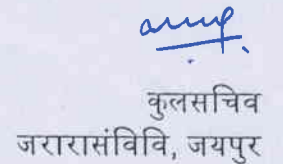 कुलसचिव
जरारासंविवि, जयपुर